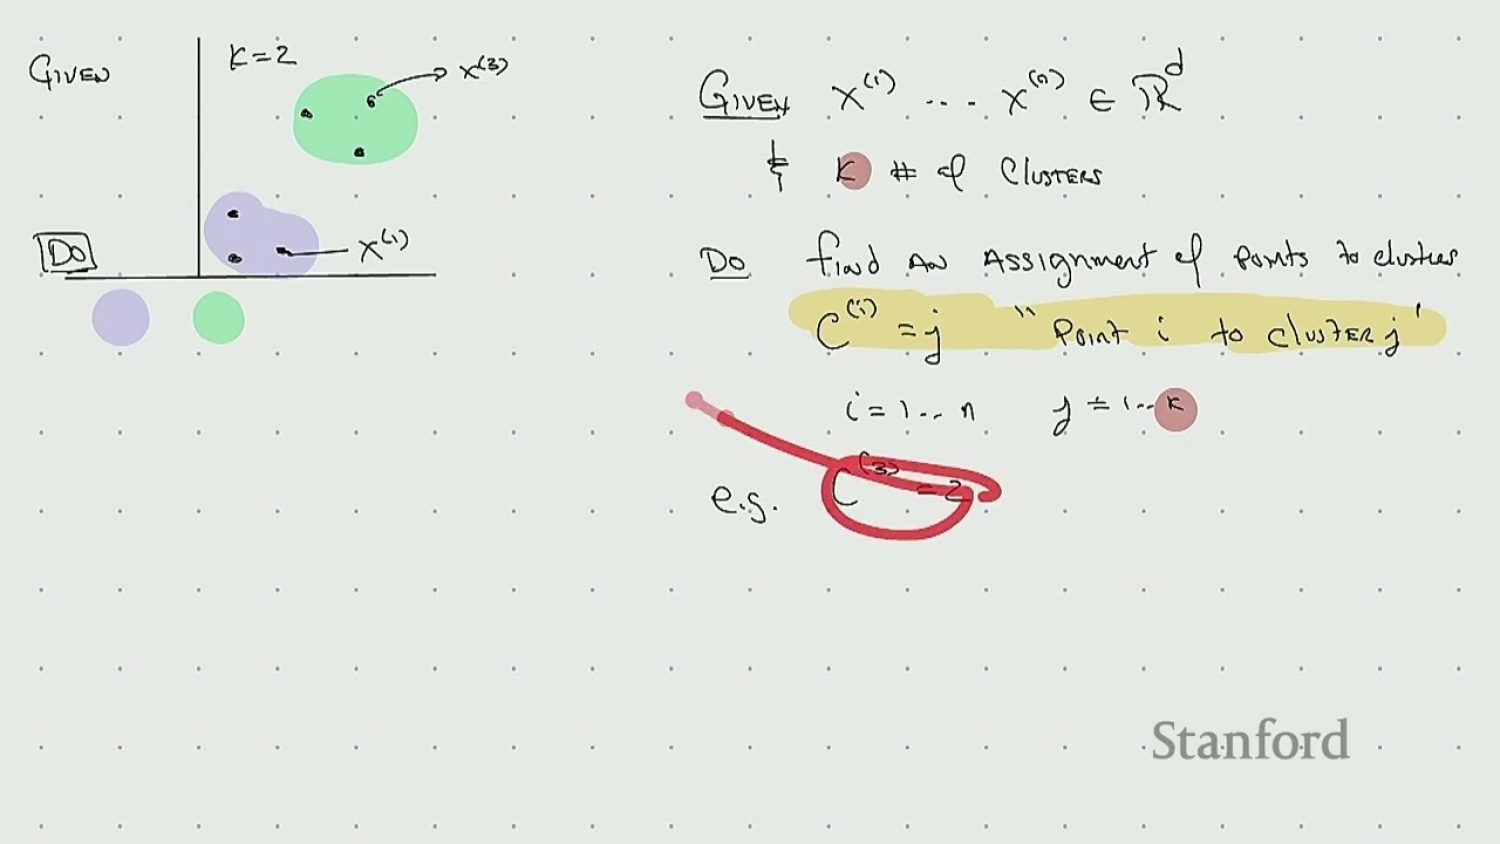 GIVEN
K=2
x⁽³⁾
DO
x⁽¹⁾
GIVEN x⁽¹⁾ .... x⁽ⁿ⁾ ∈ ℝᵈ
& K # of CLUSTERS
DO find AN ASSIGNMENT of points to clusters
C⁽ⁱ⁾ = j "Point i to CLUSTER j"
i = 1 ... n j = 1 .. K
e.g. C⁽³⁾ = 2
Stanford